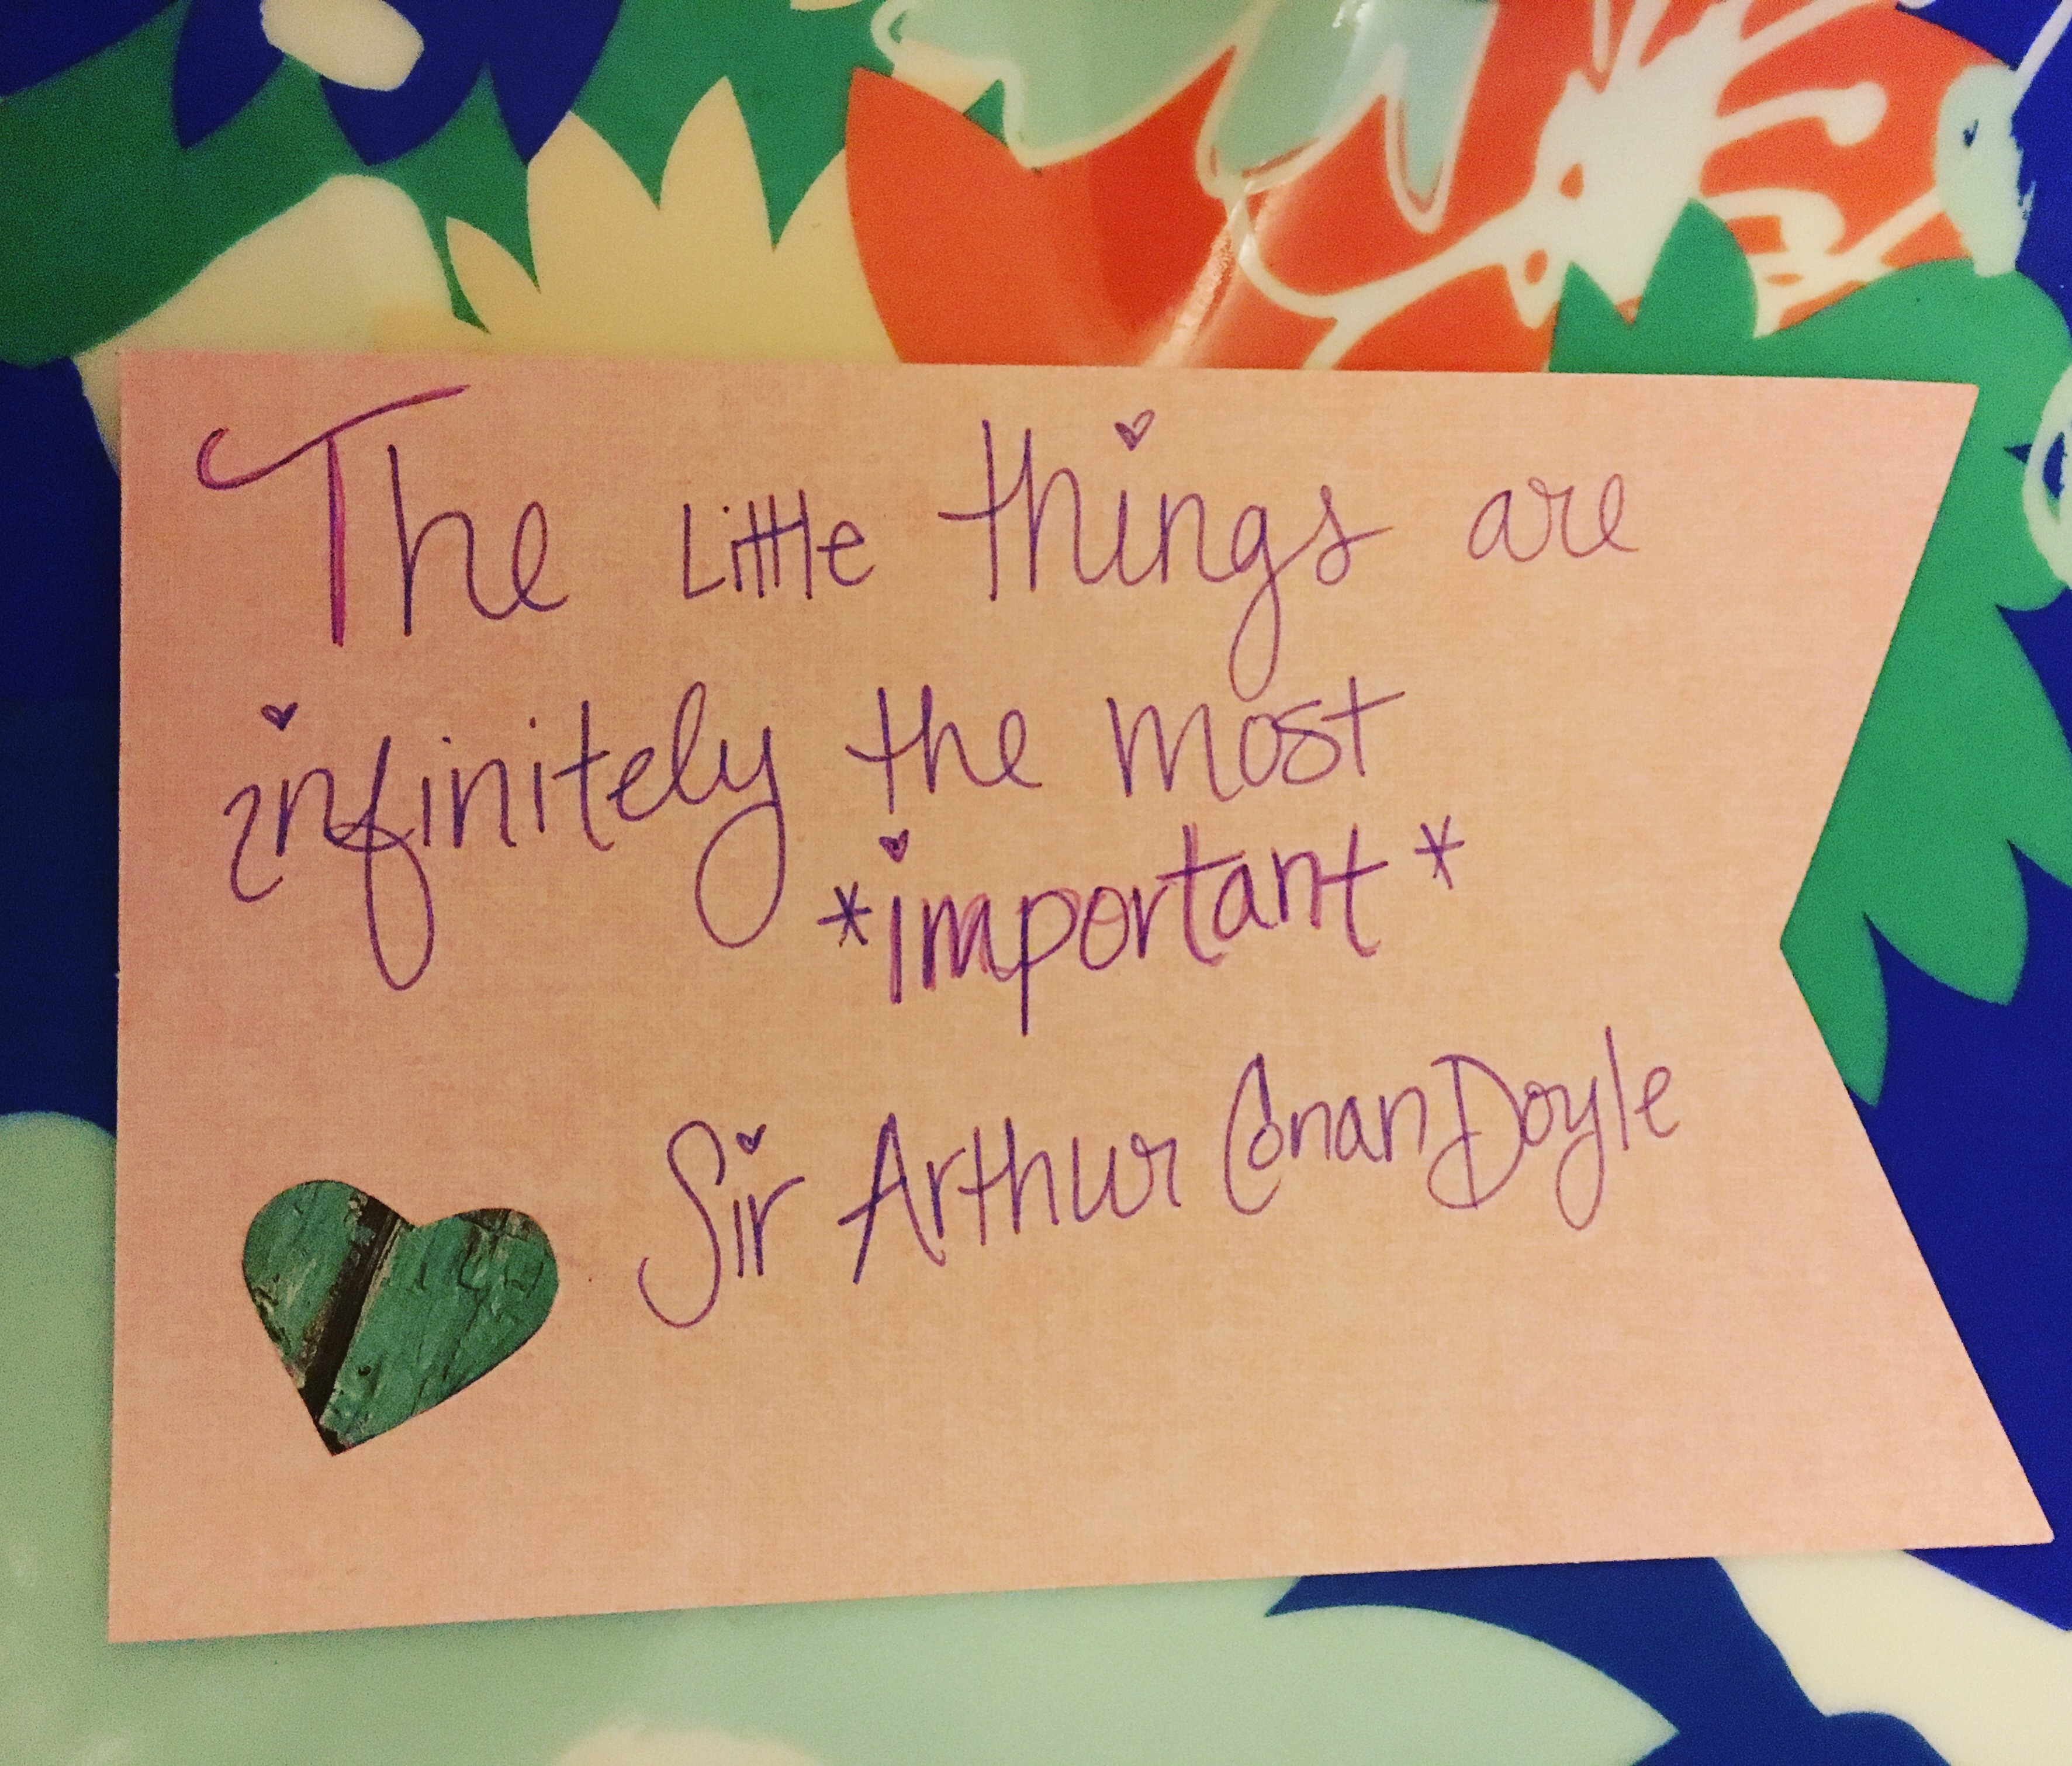 The Little things are
infinitely the most
*important*
Sir Arthur Conan Doyle